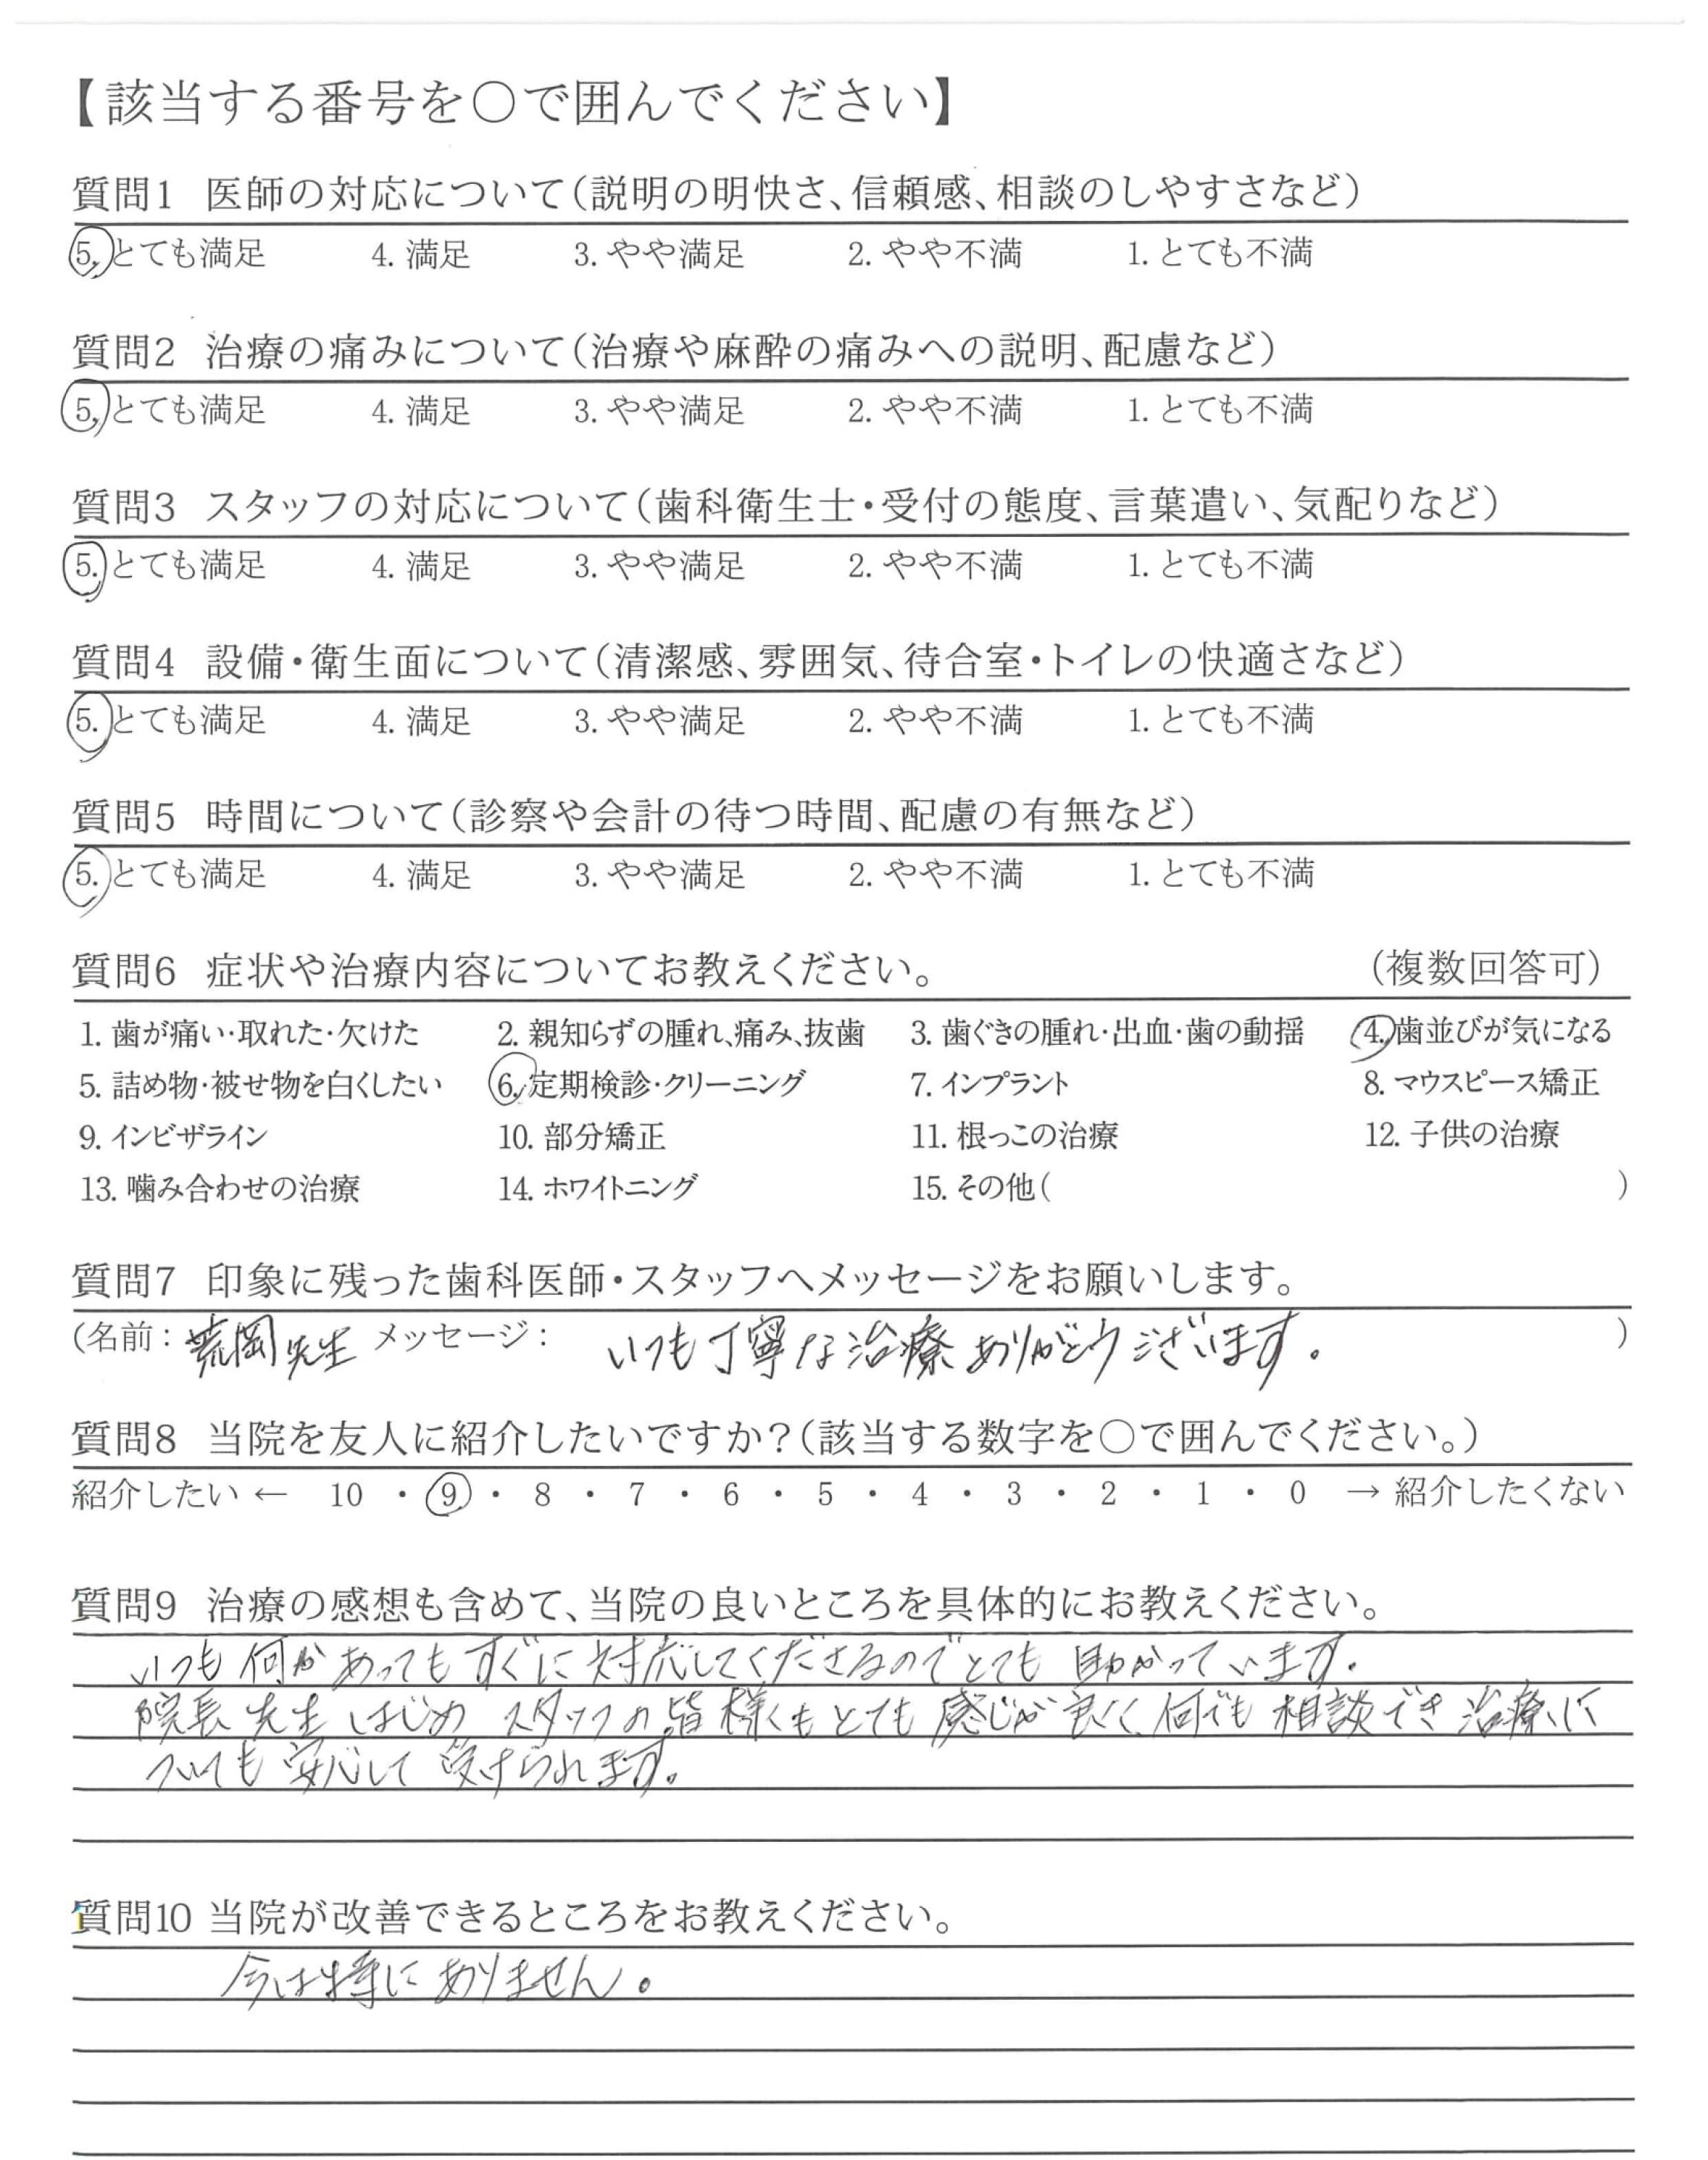 【該当する番号を〇で囲んでください】
質問1 医師の対応について(説明の明快さ、信頼感、相談のしやすさなど)
5. とても満足 4. 満足 3. やや満足 2. やや不満 1. とても不満
質問2 治療の痛みについて(治療や麻酔の痛みへの説明、配慮など)
5. とても満足 4. 満足 3. やや満足 2. やや不満 1. とても不満
質問3 スタッフの対応について(歯科衛生士・受付の態度、言葉遣い、気配りなど)
5. とても満足 4. 満足 3. やや満足 2. やや不満 1. とても不満
質問4 設備・衛生面について(清潔感、雰囲気、待合室・トイレの快適さなど)
5. とても満足 4. 満足 3. やや満足 2. やや不満 1. とても不満
質問5 時間について(診察や会計の待つ時間、配慮の有無など)
5. とても満足 4. 満足 3. やや満足 2. やや不満 1. とても不満
質問6 症状や治療内容についてお教えください。 (複数回答可)
1. 歯が痛い・取れた・欠けた 2. 親知らずの腫れ、痛み、抜歯 3. 歯ぐきの腫れ・出血・歯の動揺 4. 歯並びが気になる
5. 詰め物・被せ物を白くしたい 6. 定期検診・クリーニング 7. インプラント 8. マウスピース矯正
9. インビザライン 10. 部分矯正 11. 根っこの治療 12. 子供の治療
13. 噛み合わせの治療 14. ホワイトニング 15. その他( )
質問7 印象に残った歯科医師・スタッフへメッセージをお願いします。
(名前: 荒岡先生 メッセージ: いつも丁寧な治療ありがとうございます。 )
質問8 当院を友人に紹介したいですか?(該当する数字を〇で囲んでください。)
紹介したい ← 10 ・ 9 ・ 8 ・ 7 ・ 6 ・ 5 ・ 4 ・ 3 ・ 2 ・ 1 ・ 0 → 紹介したくない
質問9 治療の感想も含めて、当院の良いところを具体的にお教えください。
いつも何かあってもすぐに対応してくださるのでとても助かっています。
院長先生はじめスタッフの皆様もとても感じが良く、何でも相談でき治療に
ついても安心して受けられます。
質問10 当院が改善できるところをお教えください。
今は特にありません。